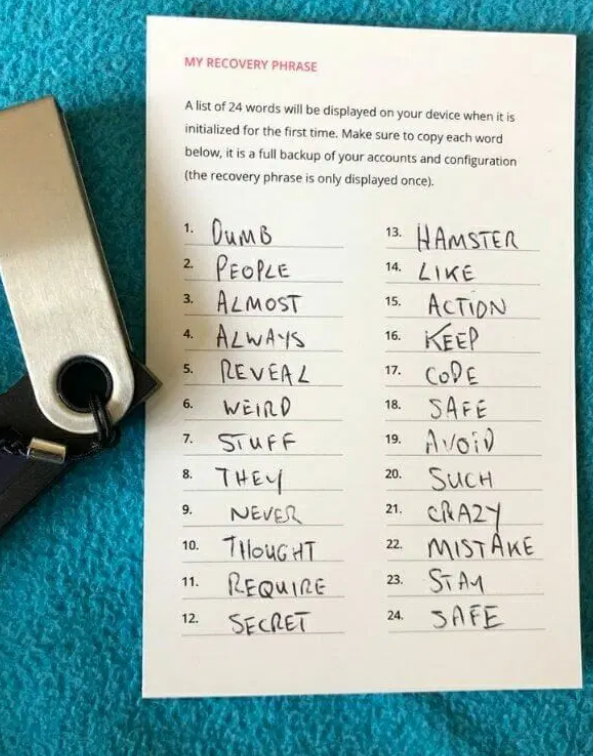 MY RECOVERY PHRASE
A list of 24 words will be displayed on your device when it is
initialized for the first time. Make sure to copy each word
below, it is a full backup of your accounts and configuration
(the recovery phrase is only displayed once).
1. DUMB
2. PEOPLE
3. ALMOST
4. ALWAYS
5. REVEAL
6. WEIRD
7. STUFF
8. THEY
9. NEVER
10. THOUGHT
11. REQUIRE
12. SECRET
13. HAMSTER
14. LIKE
15. ACTION
16. KEEP
17. CODE
18. SAFE
19. AVOID
20. SUCH
21. CRAZY
22. MISTAKE
23. STAY
24. SAFE